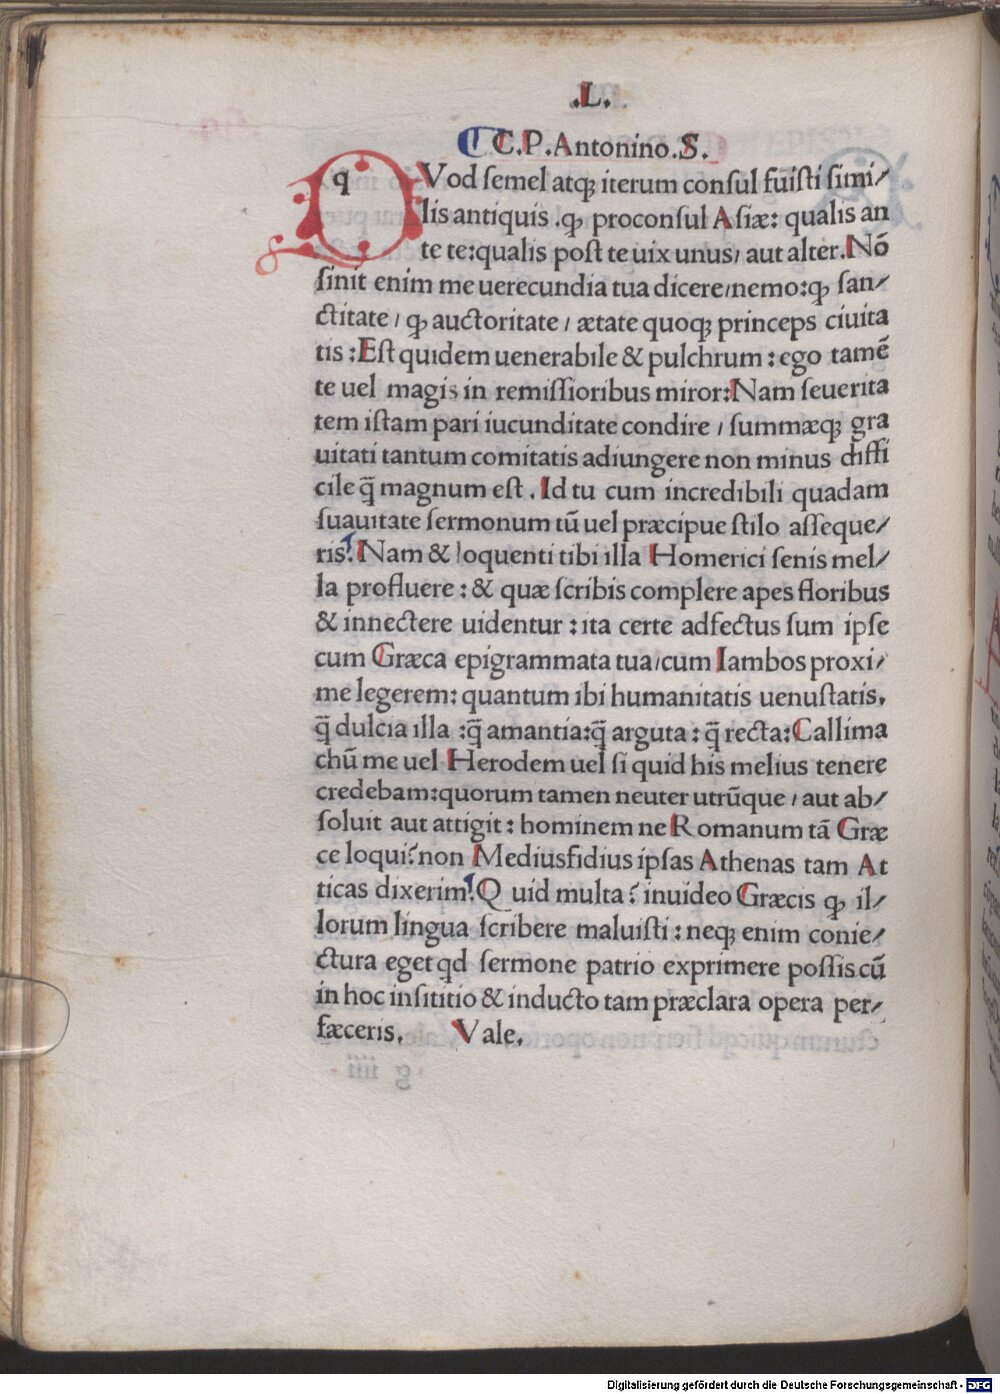 .L.
C.P.Antonino.S.
q
QVod ſemel atq; iterum conſul fuiſti ſimi/
lis antiquis .ꝙ proconſul Aſiæ: qualis an
te te:qualis poſt te uix unus/ aut alter.Nō
ſinit enim me uerecundia tua dicere/nemo:ꝙ ſan/
ctitate / ꝙ auctoritate / ætate quoq; princeps ciuita
tis :Eſt quidem uenerabile & pulchrum : ego tamē
te uel magis in remiſſioribus miror:Nam ſeuerita
tem iſtam pari iucunditate condire / ſummæq; gra
uitati tantum comitatis adiungere non minus diffi
cile q̄ magnum eſt . Id tu cum incredibili quadam
ſuauitate ſermonum tū uel præcipue ſtilo aſſeque/
ris? Nam & loquenti tibi illa Homerici ſenis mel/
la profluere : & quæ ſcribis complere apes floribus
& innectere uidentur : ita certe adfectus ſum ipſe
cum Græca epigrammata tua/cum Iambos proxi/
me legerem: quantum ibi humanitatis uenuſtatis.
q̄ dulcia illa :q̄ amantia:q̄ arguta : q̄ recta:Callima
chū me uel Herodem uel ſi quid his melius tenere
credebam:quorum tamen neuter utrūque / aut ab/
ſoluit aut attigit : hominem ne Romanum tā Græ
ce loqui?non Mediusfidius ipſas Athenas tam At
ticas dixerim?Q uid multa ? inuideo Græcis ꝙ il/
lorum lingua ſcribere maluiſti : neq; enim conie/
ctura eget qd ſermone patrio exprimere poſſis cū
in hoc inſititio & inducto tam præclara opera per/
fæceris. Vale.
Digitalisierung gefördert durch die Deutsche Forschungsgemeinschaft - DFG